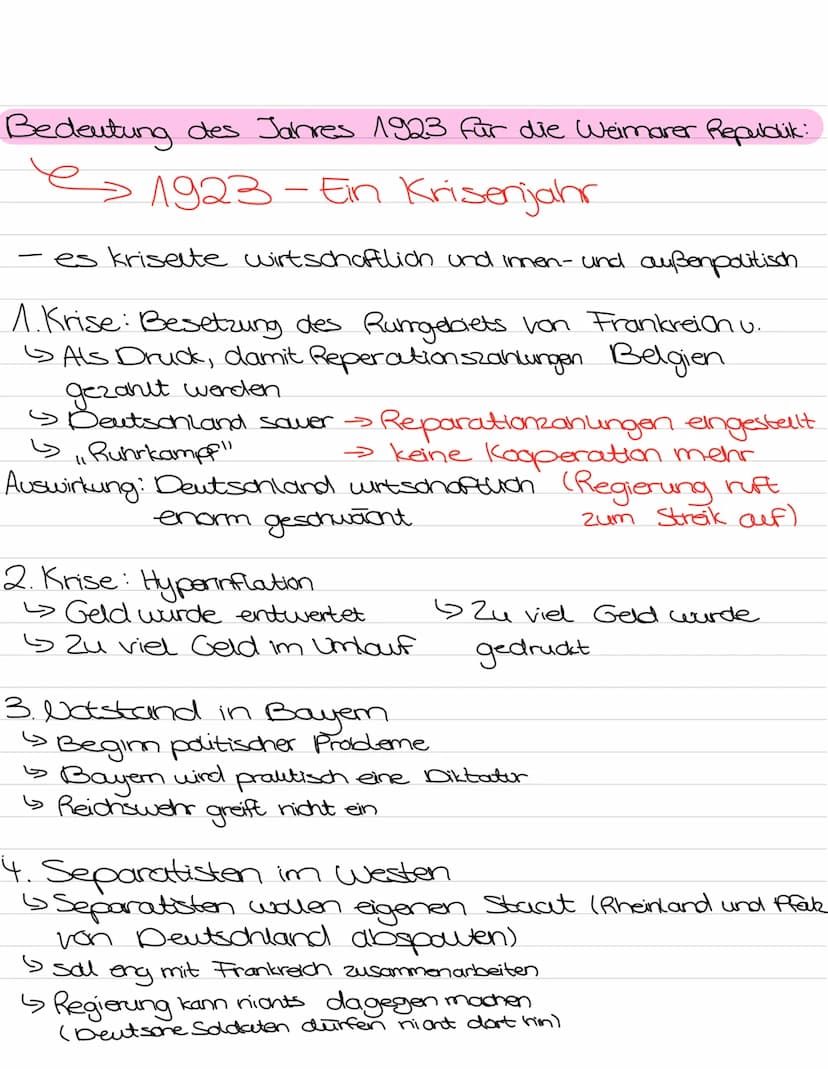 Bedeutung des Jahres 1923 für die Weimarer Republik:
1923 – Ein Krisenjahr
– es kriselte wirtschaftlich und innen- und außenpolitisch
1. Krise: Besetzung des Ruhrgebiets von Frankreich u.
↳ Als Druck, damit Reperationszahlungen Belgien
gezahlt werden
↳ Deutschland sauer → Reparationzahlungen eingestellt
↳ „Ruhrkampf" → keine Kooperation mehr
Auswirkung: Deutschland wirtschaftlich (Regierung ruft
enorm geschwächt zum Streik auf)
2. Krise: Hyperinflation
↳ Geld wurde entwertet ↳ Zu viel Geld wurde
↳ Zu viel Geld im Umlauf gedruckt
3. Notstand in Bayern
↳ Beginn politischer Probleme
↳ Bayern wird praktisch eine Diktatur
↳ Reichswehr greift nicht ein
4. Separatisten im Westen
↳ Separatisten wollen eigenen Staat (Rheinland und Pfalz
von Deutschland abspalten)
↳ soll eng mit Frankreich zusammenarbeiten
↳ Regierung kann nichts dagegen machen
(Deutsche Soldaten dürfen nicht dort hin)